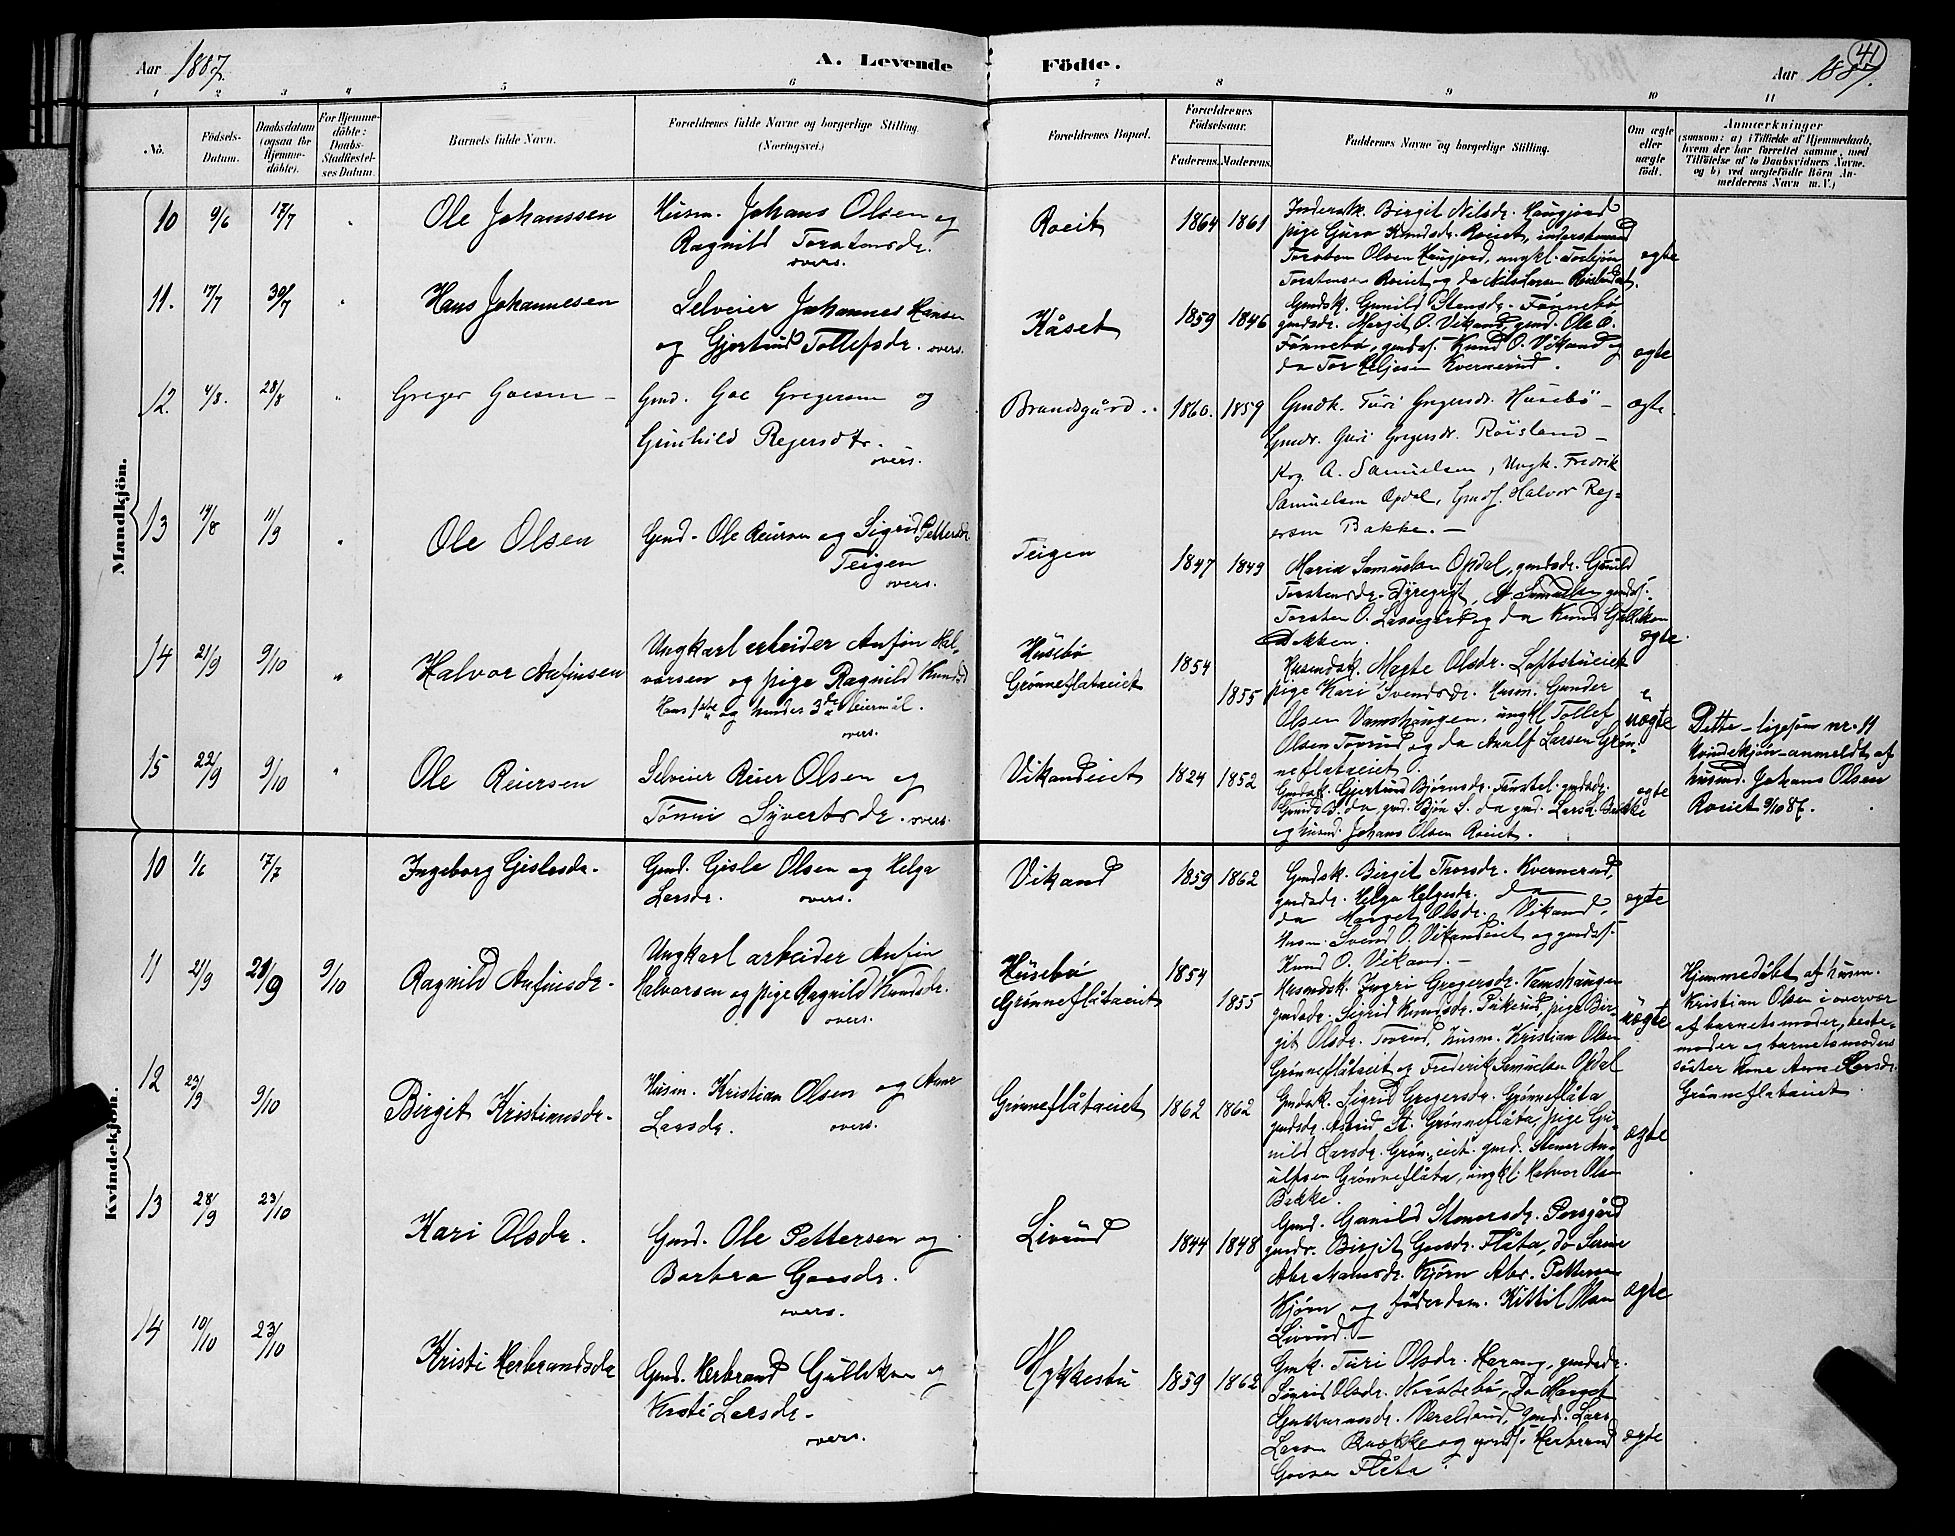 Aar 1887. A. Levende Födte. Aar 1887. 41
1 2 3 4 5 6 7 8 9 10 11
Mandkjön.
No. Födsels-Datum. Daabsdatum (ogsaa for Hjemmedöbte). For Hjemmedöbte: Daabs-Stadfæstelses Datum. Barnets fulde Navn. Forældrenes fulde Navne og borgerlige Stilling. (Næringsvei.) Forældrenes Bopæl. Forældrenes Födselsaar. Faderens. Moderens. Faddernes Navne og borgerlige Stilling. Om ægte eller uægte födt. Anmærkninger (saasom: a) i Tilfælde af Hjemmedaab, hvem der har forrettet samme, med Tilföielse af to Daabsvidners Navne, og b) ved uægtefödte Börn Anmelderens Navn m. V.)
10 9/6 17/7 " Ole Johanssen
Husm. Johans Olsen og
Ragnild Torstensdr.
overs.
Roeit 1864 1861
Inderstk. Birgit Nilsdr. Haugjord
pige Guro Knudsdr. Roeiet, inderstmand
Torsten Olsen Haugjord, ungk. Torbjön
Torstensen Roeiet og da Nils Larsen
ægte
11. 17/7 30/7 " Hans Johannesen
Selveier Johannes Hansen
og Gjertrud Tollefsdr. overs.
Kåset 1859 1846
Gmdsk. Gunild Stensdr. Fönnebø,
gmdsdr. Margit O. Vikand, gmd. Ole O.
Fönnebø, gmdss. Knud O. Vikand og
da Tor Helgesen Kvernerud.
ægte
12. 4/8. 28/8 " Greger Goesen
Gmd. Goe Gregersen og
Gunhild Reiersdtr.
overs.
Brandsgård. 1860. 1859
Gmdk. Turi Gregersdr. Husebö
Gmdr. Guri Gregersdr. Roisland
Krg. A. Samuelsen, Ungk. Fredrik
Samuelsen Opdal, Gmds. Halvor Rei-
ersen Bakke.
ægte
13 14/8 11/9 " Ole Olsen
Gmd. Ole Reiersen og Sigrid Pettersdr.
Teigen
overs.
Teigen 1847 1849
Maria Samuelsen Opdal, gmdsdr. Gunild
Torstensdr. Dyregryt, A. Samuelsen gmdss.
Torsten O. og da Knud Gulliksen
Bakken.
ægte
14 21/9 9/10 " Halvor Anfinsen
Ungkarl arbeider Anfin Hal-
vorsen og pige Ragnild Knudsd
Hans og hendes 3die leiermål.
overs.
Husebø
Grønneflataeiet 1854 1855
Husmdsk. Magte Olsdr. Loftstueiet
pige Kari Svendsdr. Husm. Gunder
Olsen Vamshaugen, ungk. Tollef
Olsen Tovrud og da Anulf Larsen Grøn-
neflataeiet.
uægte
Dette ligesom nr. 11
kvindekjøn anmeldt af
husmd. Johans Olsen
Roeiet 9/10 87.
15 22/9 9/10 " Ole Reiersen
Selveier Reier Olsen og
Tönni Syvertsdr. overs.
Vikandeiet 1824 1852
Gmdsk. Gjertrud Björnsdr. gmdsdr.
Gunild B. da gmd. Bjön S. da gmd. Lars L. Bække
og husmd. Johans Olsen Roeiet.
ægte
Kvindekjön.
10 1/6 17/7 Ingeborg Gislesdr.
Gmd. Gisle Olsen og Helga
Larsdr. overs.
Vikand 1859 1862
Gmdsk. Birgit Thorsdr. Kvernerud,
gmdsdr. Helga Helgesdr. da
da Margit Olsdr. Vikand,
Husm. Svend O. Vikandeiet og gmdss.
Knud O. Vikand.
ægte
11 21/9 21/9 9/10 Ragnild Anfinsdr.
Ungkarl arbeider Anfin
Halvorsen og pige Ragnild Knudsdr.
overs.
Husebø
Grønneflåtaeiet 1854 1855
Husmdsk. Ingri Gregersdr. Vamshaugen
gmdsdr. Sigrid Knudsdr. pige Bir-
git Olsdr. Tovrud, husm. Kristian Olsen
Grønneflåtaeiet og Frederik Samuelsen Opdal
uægte
Hjemmedøbt af husm.
Kristian Olsen i overvær
af barnets moder, beste-
moder og barnets moders
søster kone Anne Larsdr.
Grønneflataeiet
12 23/9 9/10 Birgit Kristiansdr.
Husm. Kristian Olsen og Anne
Larsdr. overs.
Grønneflåtaeiet 1862 1862
Gmdsk. Sigrid Gregersdr. Grønneflåta
gmdsdr. Astrid St. Grønneflåta, pige Gu-
nild Larsdr. Grøn. eiet. gmd. Stener An-
ulfsen Grønneflåta, ungk. Halvor Olsen
Bække.
ægte
13 28/9 23/10 Kari Olsdr.
Gmd. Ole Pettersen og
Barbra Goesdr.
overs.
Livrud 1844 1848
Gmd. Gunild Stenersdr. Persgård
gmdr. Birgit Goesdr. Flåta, da
Abrahamsdr. Kjörn Abr. Pettersen
Kjörn og föderdsm. Kittil Olsen
Livrud.
ægte
14 10/10 23/10 Kristi Herbrandsdr
Gmd. Herbrand Gulliksen og
Kristi Larsdr.
overs.
Mykkestu 1859 1862
Gmk. Turi Olsdr. Harang, gmdsdr.
Sigrid Olsdr. Da Margit
Guttormsdr. Veraldrud, Gmd. Lars
Larsen Brække og gmdss. Herbrand
Goesen Flåta.
ægte